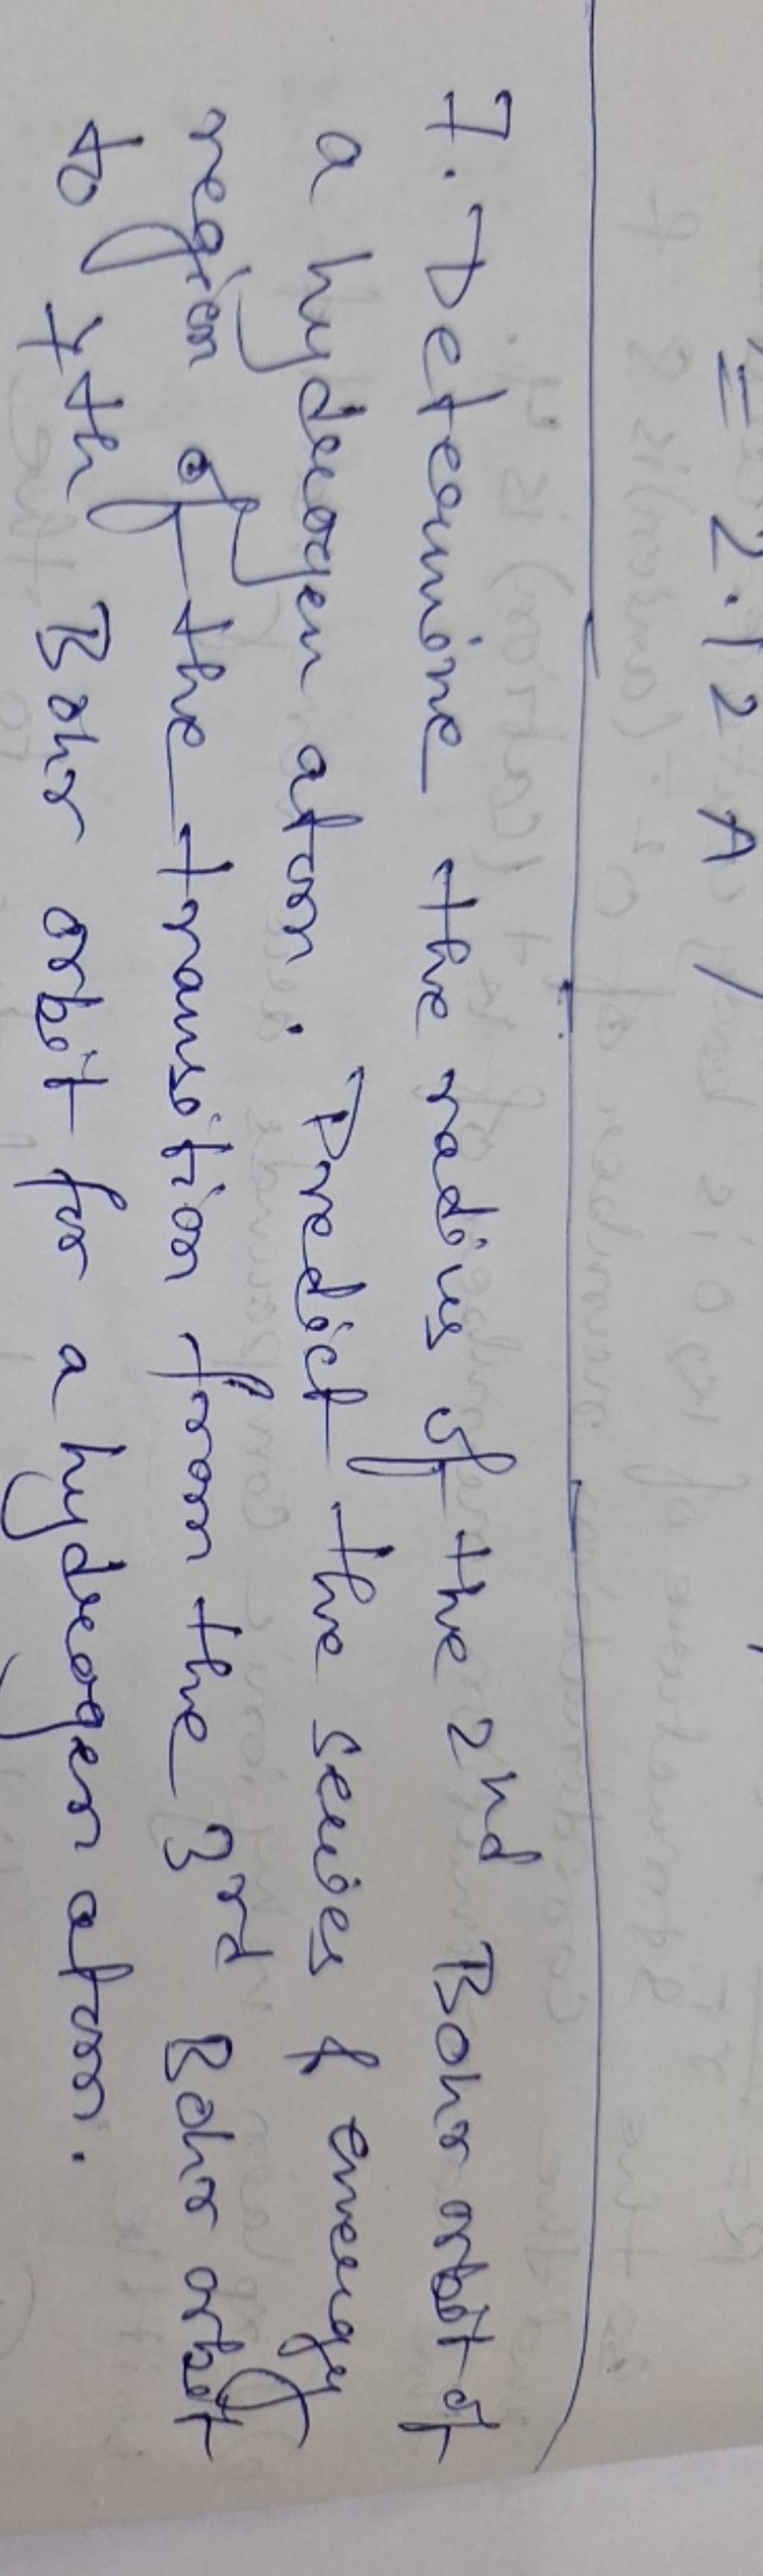 = 2.12 A /
7. Determine the radius of the 2nd Bohr orbit of
a hydrogen atom. Predict the series & energy
region of the transition from the 3rd Bohr orbit
to 7th Bohr orbit for a hydrogen atom.